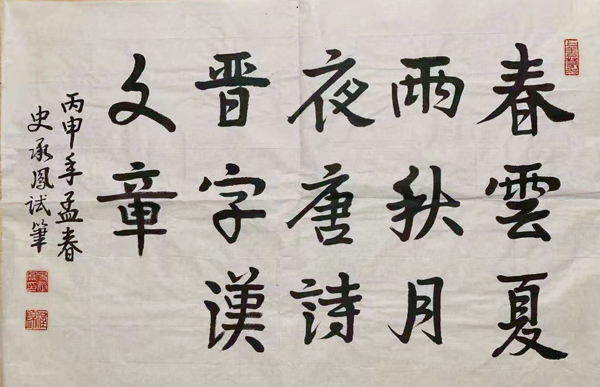 春雲夏
雨秋月
夜唐詩
晋字漢
文章
丙申年孟春
史承鳳试筆